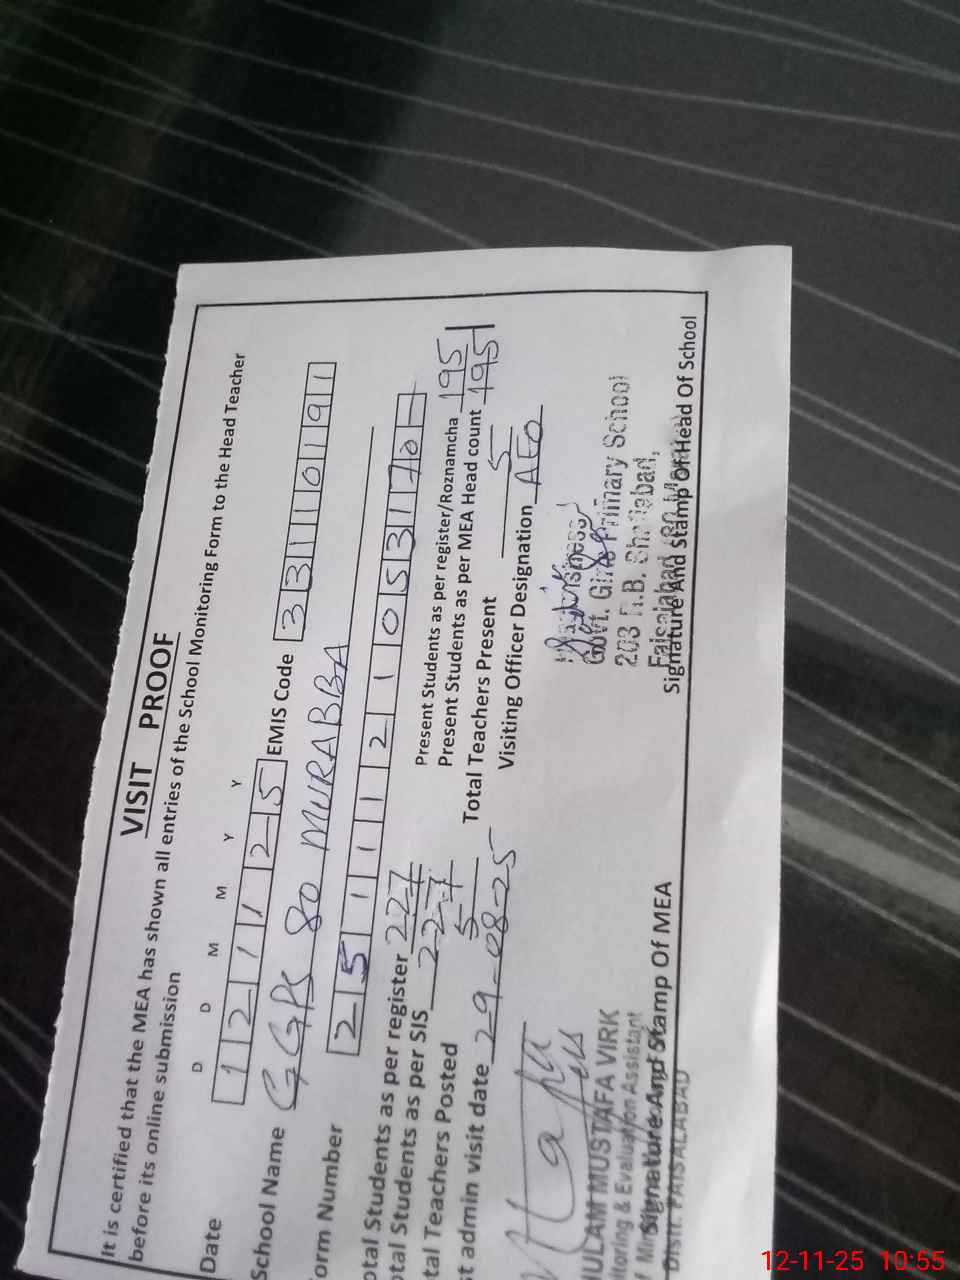 VISIT PROOF
It is certified that the MEA has shown all entries of the School Monitoring Form to the Head Teacher
before its online submission
D D M M Y Y
Date 1 2 1 1 2 5 EMIS Code 3 3 1 1 0 1 9 1
School Name GGPS 80 MURABBA
orm Number 2 5 1 1 1 1 2 1 1 0 5 3 1 7 0
otal Students as per register 227 Present Students as per register/Roznamcha 195
otal Students as per SIS 227 Present Students as per MEA Head count 195
tal Teachers Posted 5 Total Teachers Present 5
t admin visit date 29-08-25 Visiting Officer Designation AEO
Govt. Girls Primary School
203 R.B.
Faisalabad
Signature And Stamp Of Head Of School
HULAM MUSTAFA VIRK
itoring & Evaluation Assistant
Signature And Stamp Of MEA
Distt. FAISALABAD
12-11-25 10:55